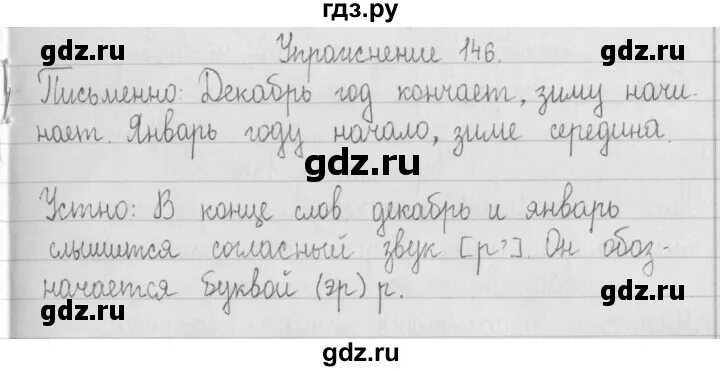 гдз.ру
gdz.ru gdz.ru
Упражнение 146.
Письменно: Декабрь год кончает, зиму начи-
нает. Январь году начало, зиме середина.
gdz.ru gdz.ru
Устно: В конце слов декабрь и январь
слышится согласный звук [р']. Он обоз-
gdz.ru gdz.ru
начается буквой (эр) р.
gdz.ru